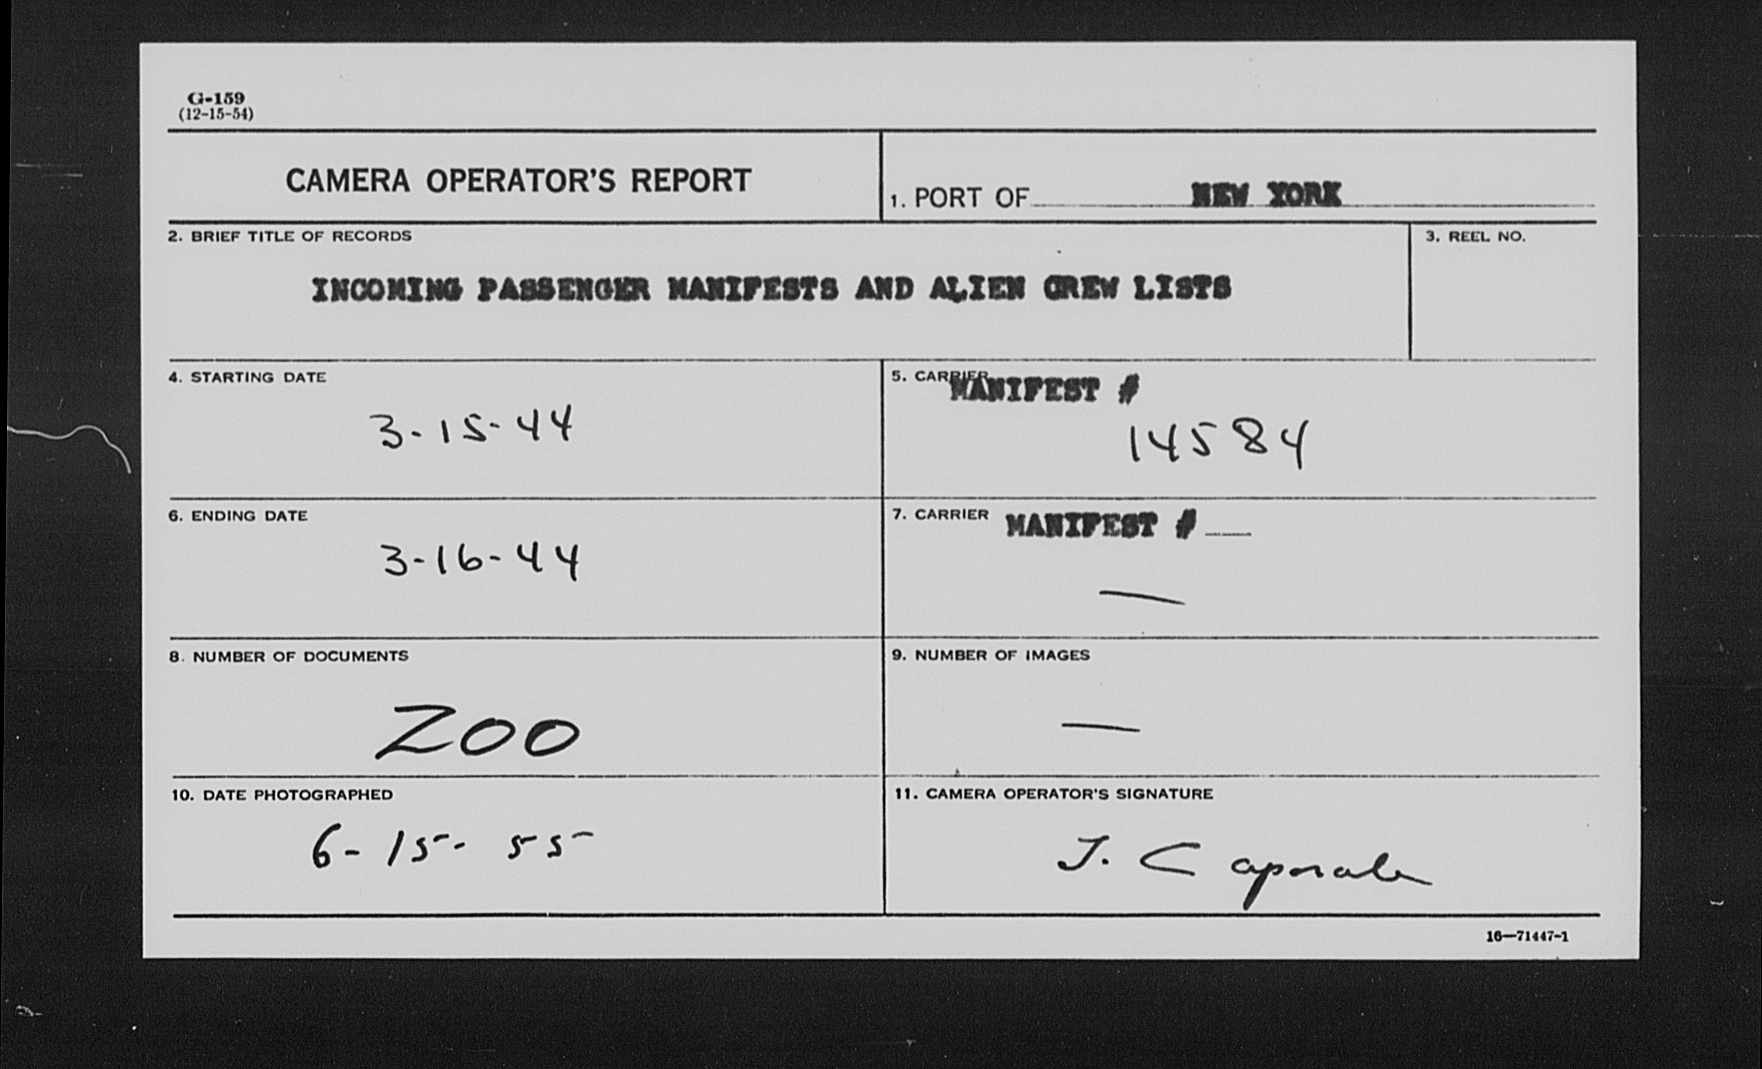 G-159
(12-15-54)
CAMERA OPERATOR'S REPORT
1. PORT OF NEW YORK
2. BRIEF TITLE OF RECORDS
INCOMING PASSENGER MANIFESTS AND ALIEN CREW LISTS
3. REEL NO.
4. STARTING DATE
3-15-44
5. CARRIER MANIFEST #
14584
6. ENDING DATE
3-16-44
7. CARRIER MANIFEST #
—
8. NUMBER OF DOCUMENTS
200
9. NUMBER OF IMAGES
—
10. DATE PHOTOGRAPHED
6-15-55
11. CAMERA OPERATOR'S SIGNATURE
J. Caporale
16—71447-1